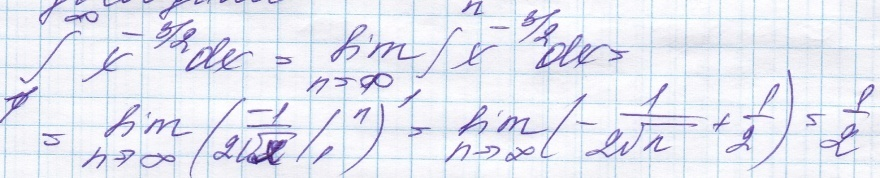 ∫₁^∞ x^(-3/2) dx = lim_(n→∞) ∫^n x^(-3/2) dx =
= lim_(n→∞) (-1/(2√x) |₁^n)' = lim_(n→∞) (-1/(2√n) + 1/2) = 1/2